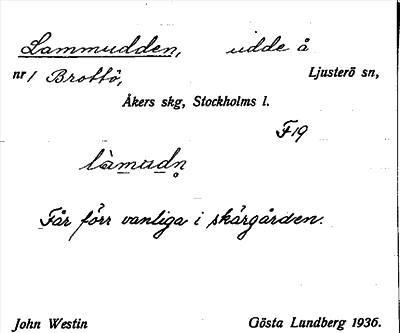 Lammudden, udde å
nr 1 Brottö, Ljusterö sn,
Åkers skg, Stockholms l.
F19
làmudn̥
Får förr vanliga i skärgården.
John Westin Gösta Lundberg 1936.